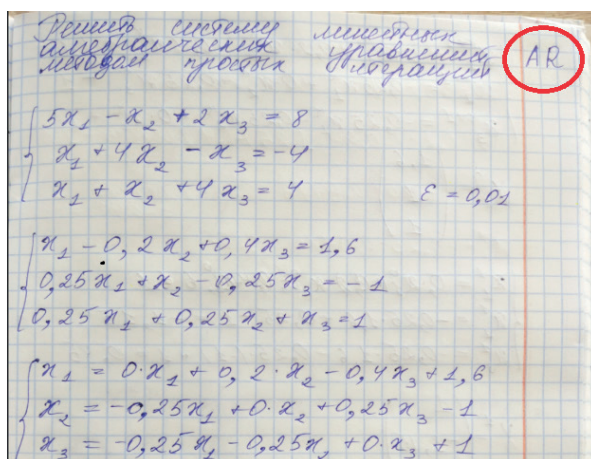 Решить систему линейных
алгебраических уравнений
методом простых итераций
AR
5x₁ - x₂ + 2x₃ = 8
x₁ + 4x₂ - x₃ = -4
x₁ + x₂ + 4x₃ = 4
ε = 0,01
x₁ - 0,2x₂ + 0,4x₃ = 1,6
0,25x₁ + x₂ - 0,25x₃ = -1
0,25x₁ + 0,25x₂ + x₃ = 1
x₁ = 0·x₁ + 0,2·x₂ - 0,4x₃ + 1,6
x₂ = -0,25x₁ + 0·x₂ + 0,25x₃ - 1
x₃ = -0,25x₁ - 0,25x₂ + 0·x₃ + 1